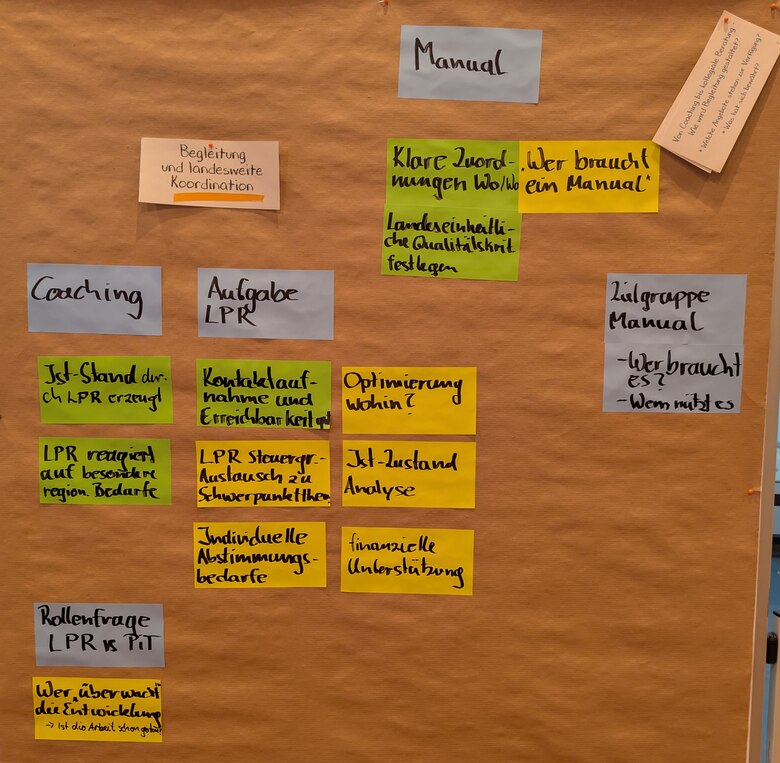 Manual
Von Coaching bis kollegiale Beratung -
Wie wird Begleitung gestaltet?
• Welche Angebote stehen zur Verfügung?
• Was hat sich bewährt?
Begleitung
und landesweite
Koordination
Klare Zuord-
nungen Wo/Wo
Landeseinheitli-
che Qualitätskrit
festlegen
"Wer braucht
ein Manual"
Coaching
Ist-Stand dur-
ch LPR erzeugt
LPR reagiert
auf besondere
region. Bedarfe
Aufgabe
LPR
Kontaktauf-
nahme und
Erreichbarkeit gut
LPR Steuergr.-
Austausch zu
Schwerpunktthem
Individuelle
Abstimmungs-
bedarfe
Optimierung
wohin?
Ist-Zustand
Analyse
finanzielle
Unterstützung
Zielgruppe
Manual
- Wer braucht
es?
- Wem nützt es
Rollenfrage
LPR vs PiT
Wer "überwacht"
die Entwicklung
→ Ist die Arbeit schon getan